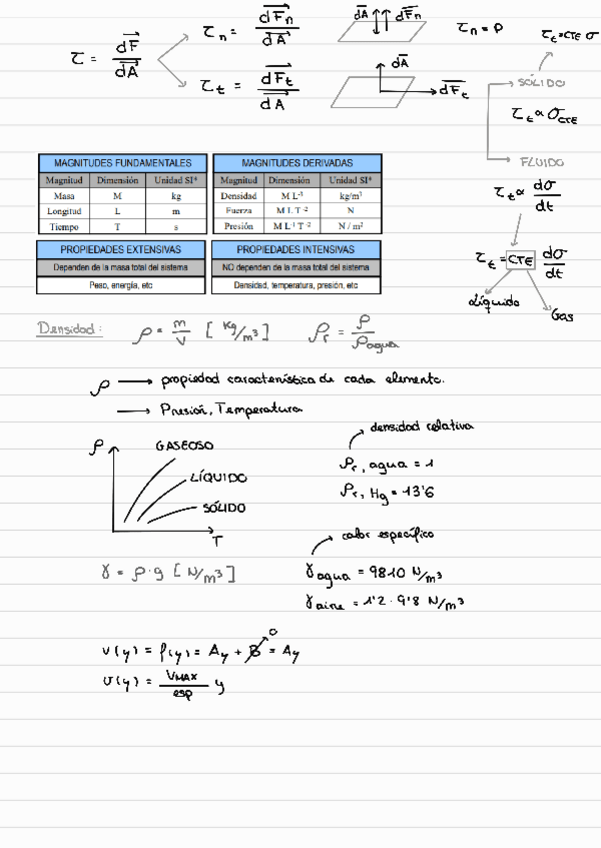 τ = dF/dA
τn = dFn/dA
dA dFn
τn = P
τt = CTE σ
τt = dFt/dA
dA
dFt
SÓLIDO
τt ∝ σ CTE
FLUIDO
τt ∝ dσ/dt
τt = CTE dσ/dt
Líquido
Gas
MAGNITUDES FUNDAMENTALES
Magnitud Dimensión Unidad SI*
Masa M kg
Longitud L m
Tiempo T s
MAGNITUDES DERIVADAS
Magnitud Dimensión Unidad SI*
Densidad M L-3 kg/m3
Fuerza M L T-2 N
Presión M L-1 T-2 N / m2
PROPIEDADES EXTENSIVAS
Dependen de la masa total del sistema
Peso, energía, etc
PROPIEDADES INTENSIVAS
NO dependen de la masa total del sistema
Densidad, temperatura, presión, etc
Densidad: ρ = m/v [kg/m³] ρr = ρ/ρagua
ρ → propiedad característica de cada elemento.
→ Presión, Temperatura
densidad relativa
ρr, agua = 1
ρr, Hg = 13'6
ρ
GASEOSO
LÍQUIDO
SÓLIDO
T
calor específico
γ = ρ·g [N/m³]
γagua = 9810 N/m³
γaire = 1'2 · 9'8 N/m³
v(y) = f(y) = Ay + B = Ay
0
v(y) = VMAX/esp y